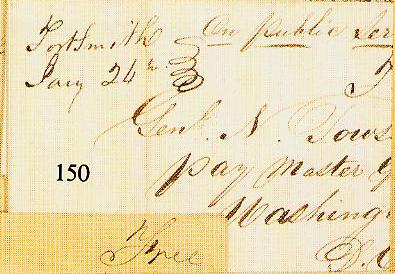 Fort Smith
Jany 24th
On Public Ser
Genl. N. Tows
Pay Master G
Washing
D. C
150
Free